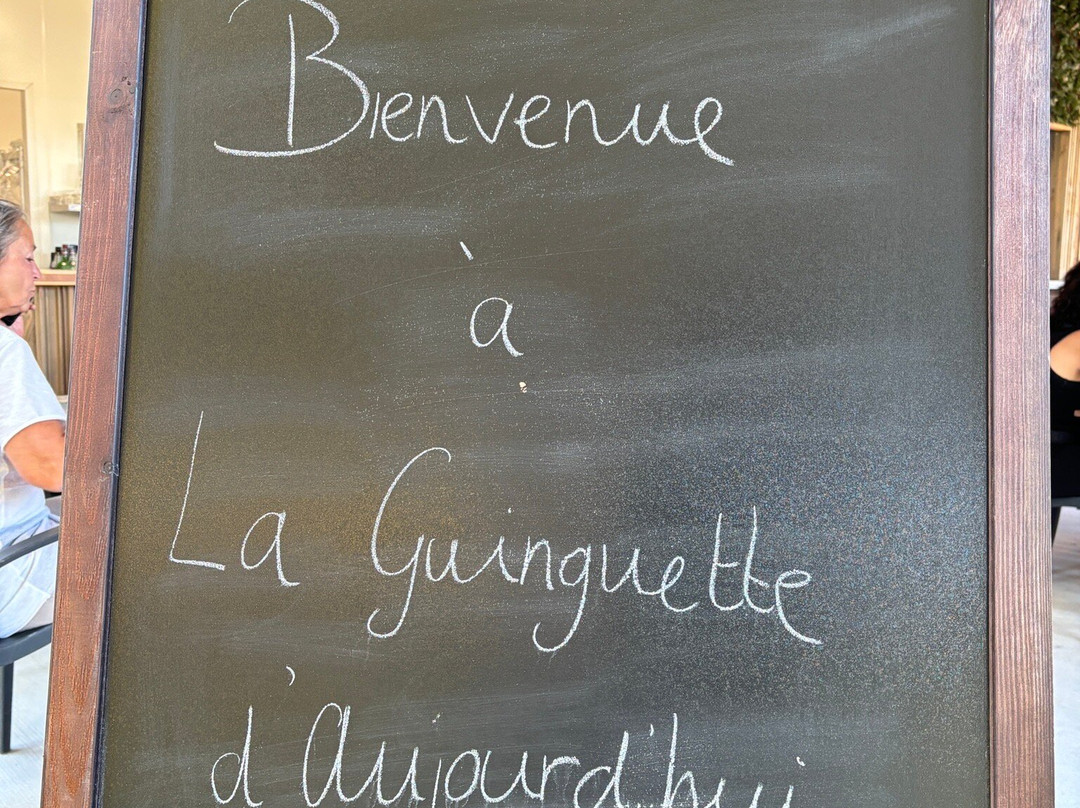 Bienvenue
à
La Guinguette
d'Aujourd'hui